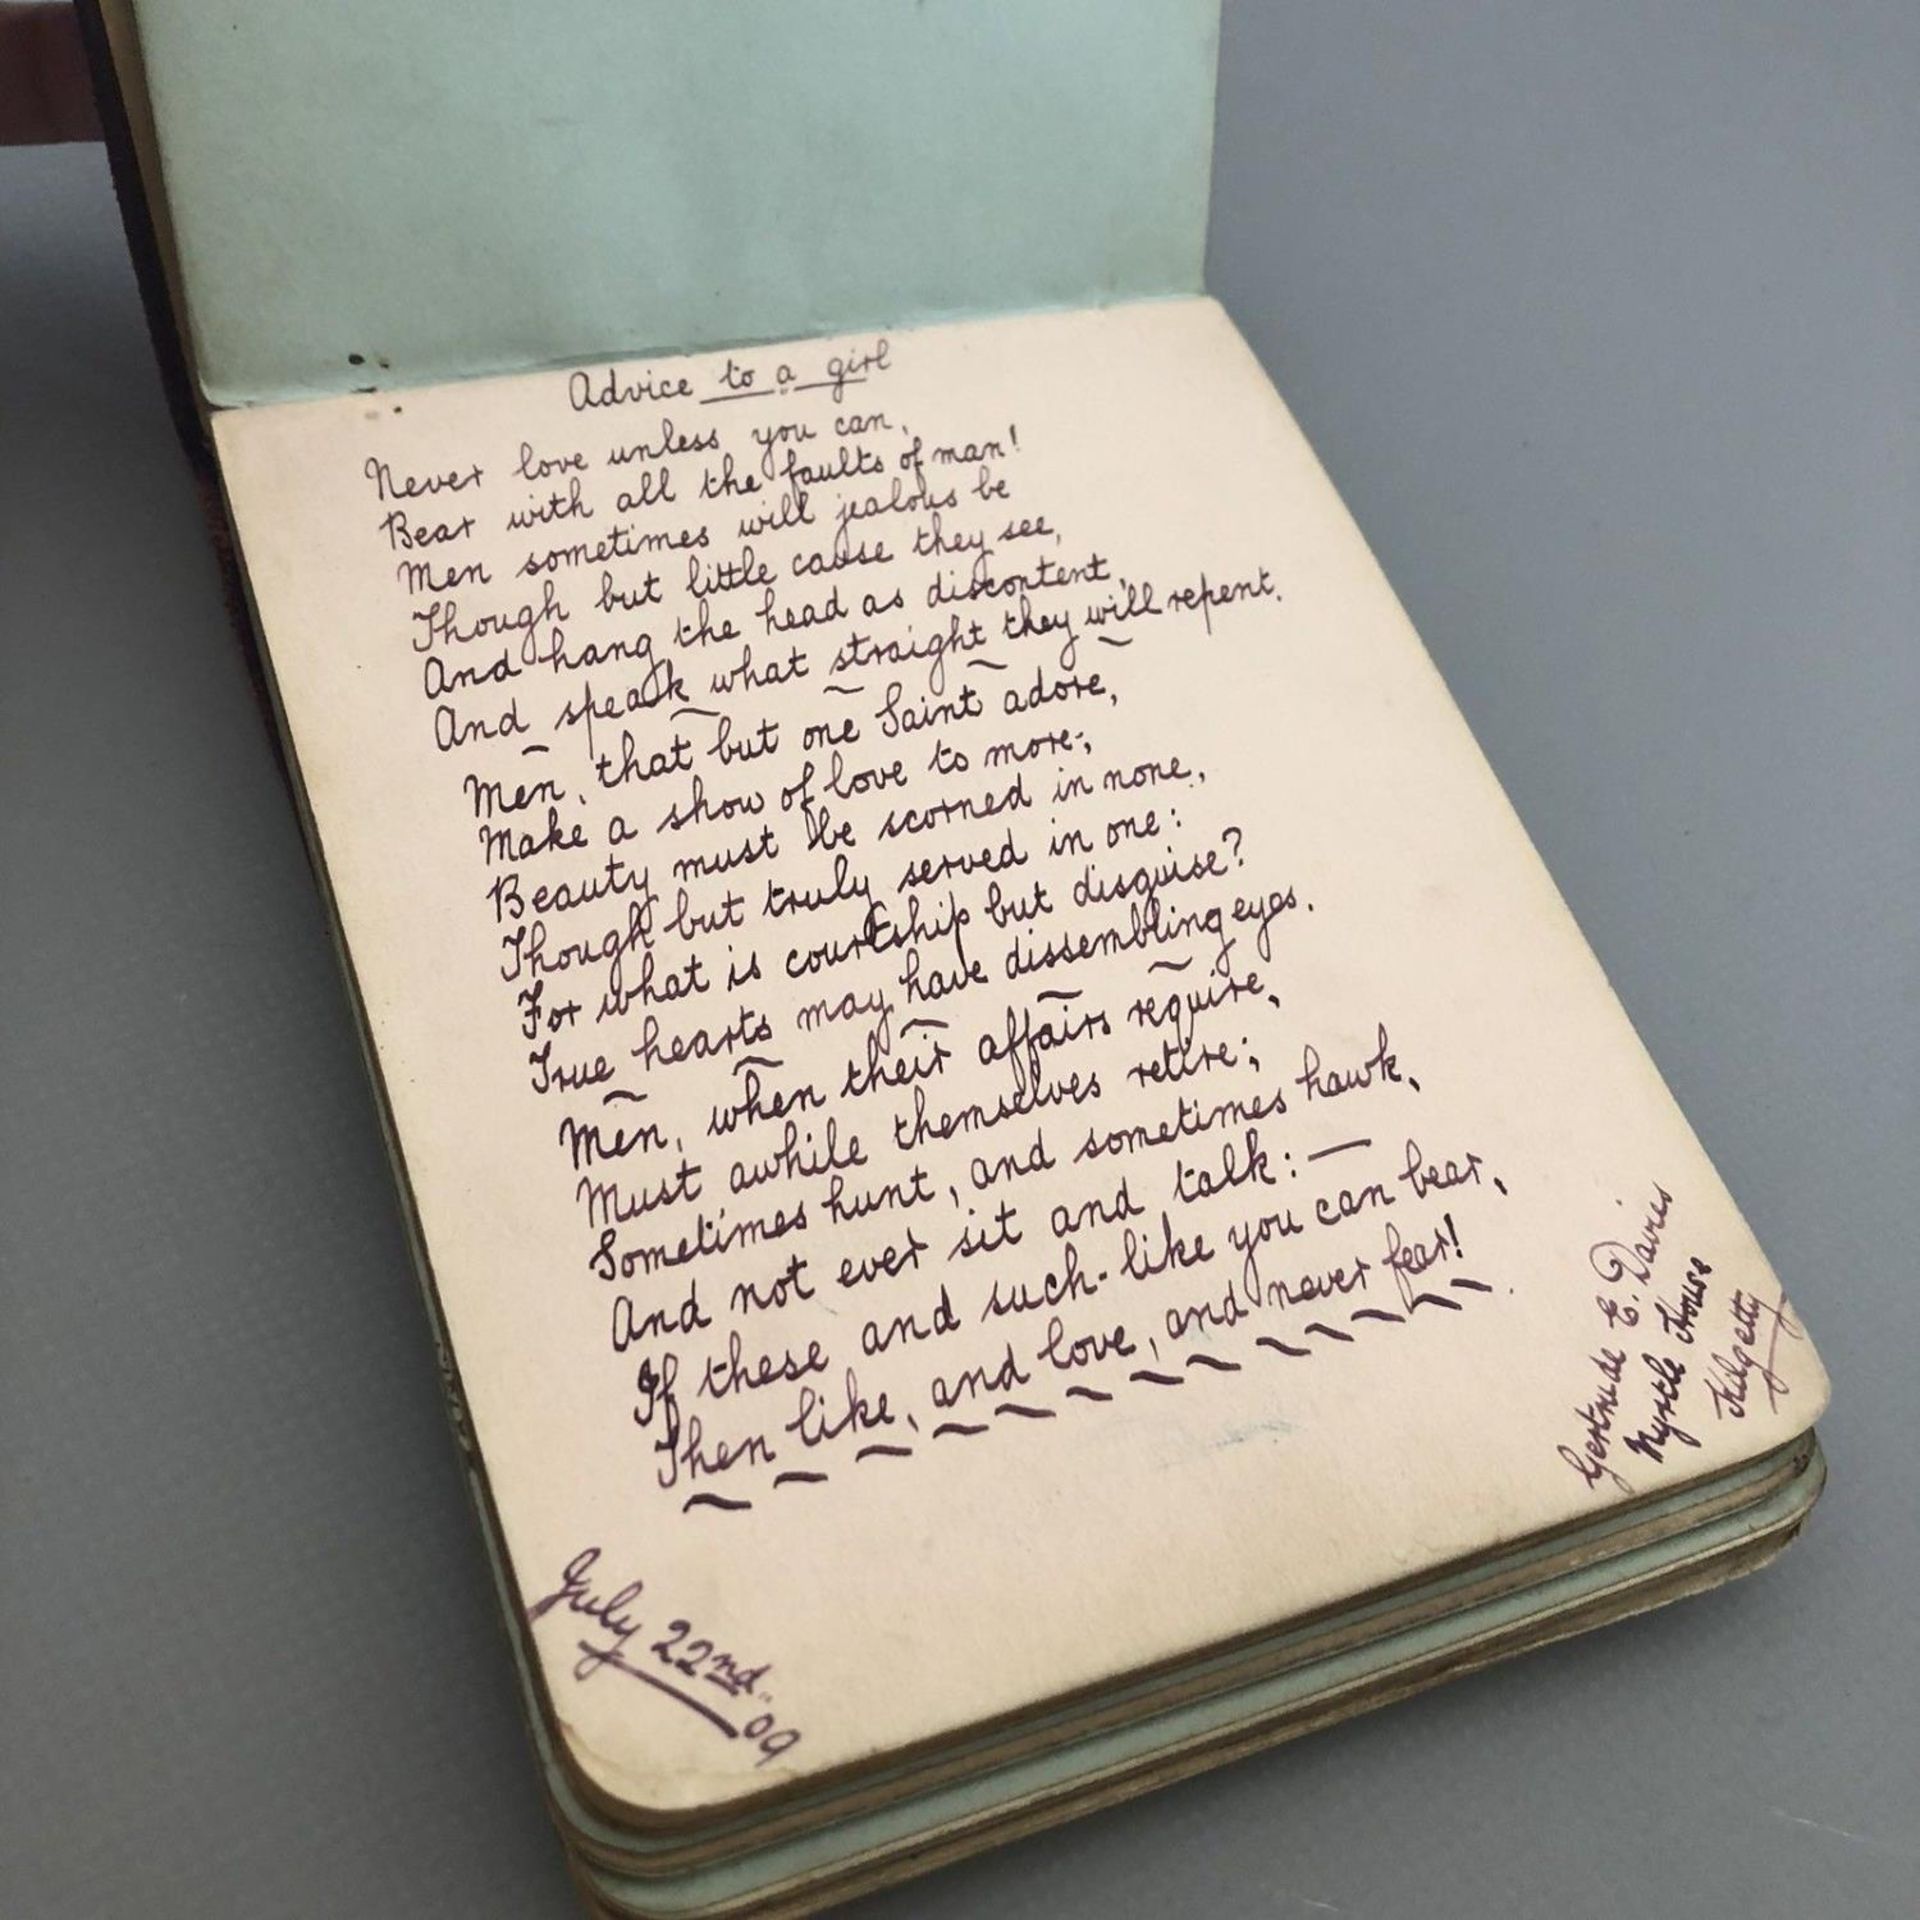 Advice to a girl
Never love unless you can,
Bear with all the faults of man!
Men sometimes will jealous be
Though but little cause they see,
And hang the head as discontent,
And speak what straight they will repent.
Men, that but one Saint adore,
Make a show of love to more;
Beauty must be scorned in none,
Though but truly served in one:
For what is courtship but disguise?
True hearts may have dissembling eyes.
Men, when their affairs require,
Must awhile themselves retire;
Sometimes hunt, and sometimes hawk,
And not ever sit and talk:—
If these and such-like you can bear,
Then like, and love, and never fear!
Gertrude E. Davies
Myrtle House
Kilgetty
July 22nd. 09